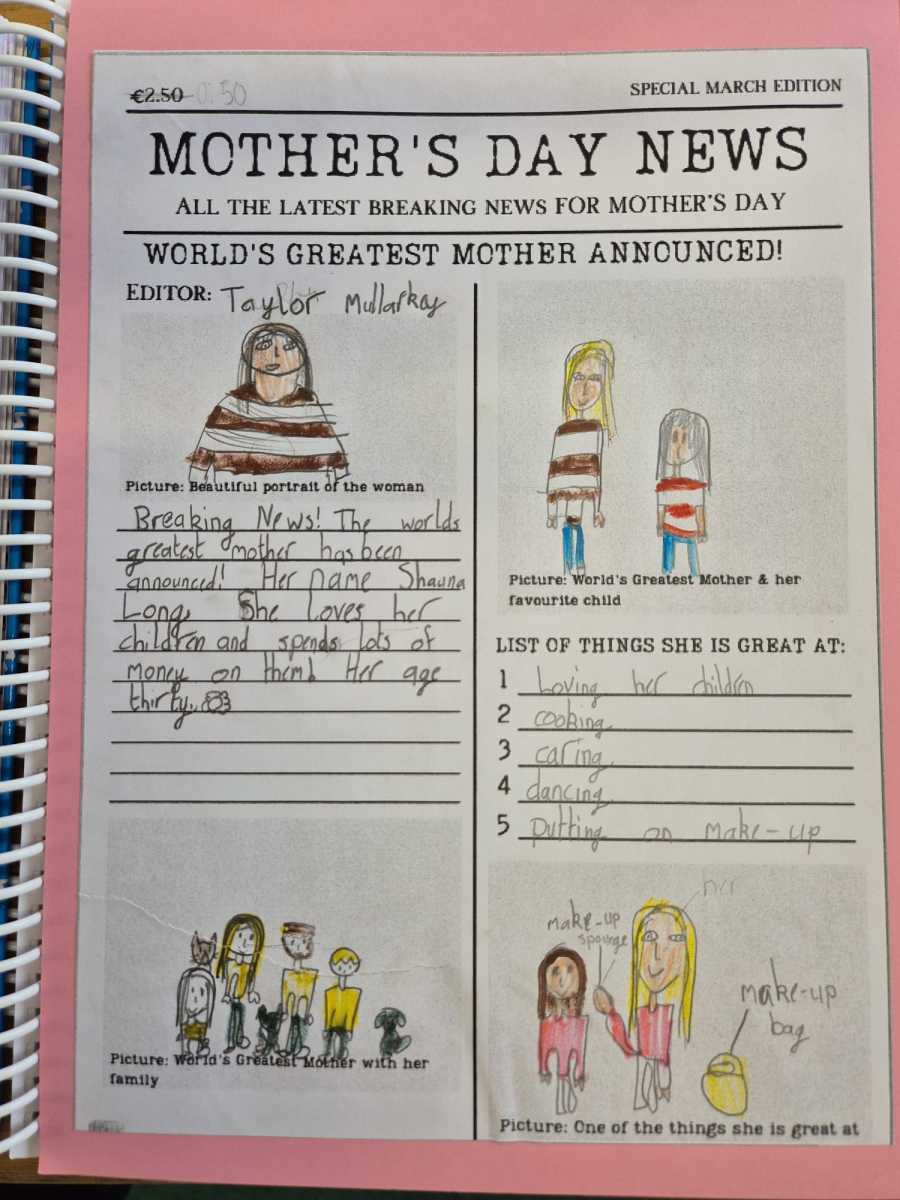 €2.50 0.50
SPECIAL MARCH EDITION
MOTHER'S DAY NEWS
ALL THE LATEST BREAKING NEWS FOR MOTHER'S DAY
WORLD'S GREATEST MOTHER ANNOUNCED!
EDITOR: Taylor Mullarkey
Picture: Beautiful portrait of the woman
Breaking News! The worlds
greatest mother has been
announced! Her name Shauna
Long. She loves her
children and spends lots of
money on them! Her age
thirty.
Picture: World's Greatest Mother with her
family
Picture: World's Greatest Mother & her
favourite child
LIST OF THINGS SHE IS GREAT AT:
1 Loving her children
2 cooking
3 caring
4 dancing
5 Putting on make-up
her
make-up
spounge
make-up
bag
Picture: One of the things she is great at